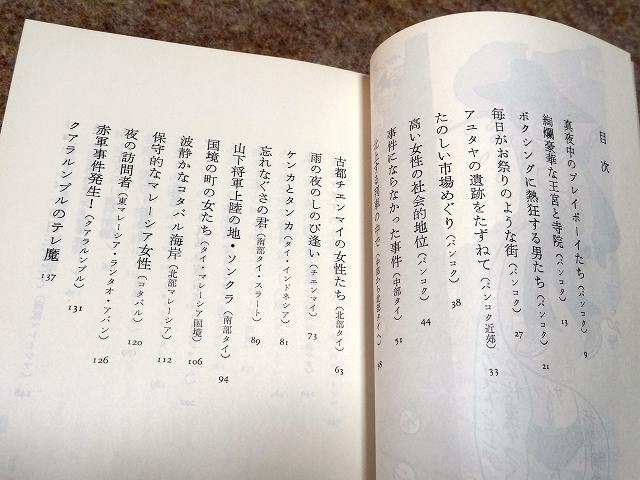 目次
真夜中のプレイボーイたち（バンコク） 9
絢爛豪華な王宮と寺院（バンコク） 13
ボクシングに熱狂する男たち（バンコク） 21
毎日がお祭りのような街（バンコク） 27
アユタヤの遺跡をたずねて（バンコク近郊） 33
たのしい市場めぐり（バンコク） 38
高い女性の社会的地位（バンコク） 44
事件にならなかった事件（中部タイ） 51
北上する列車の中で（中部から北部タイへ） 58
古都チエンマイの女性たち（北部タイ） 63
雨の夜のしのび逢い（チエンマイ） 73
ケンカとタンカ（タイ・インドネシア） 81
忘れなぐさの君（南部タイ・スラート） 89
山下将軍上陸の地・ソンクラ（南部タイ） 94
国境の町の女たち（タイ・マレーシア国境） 106
波静かなコタバル海岸（北部マレーシア） 112
保守的なマレーシア女性（コタバル） 120
夜の訪問者（東マレーシア・ランタオ・アバン） 126
赤軍事件発生！（クアラルンプル） 131
クアラルンプルのテレ魔 137